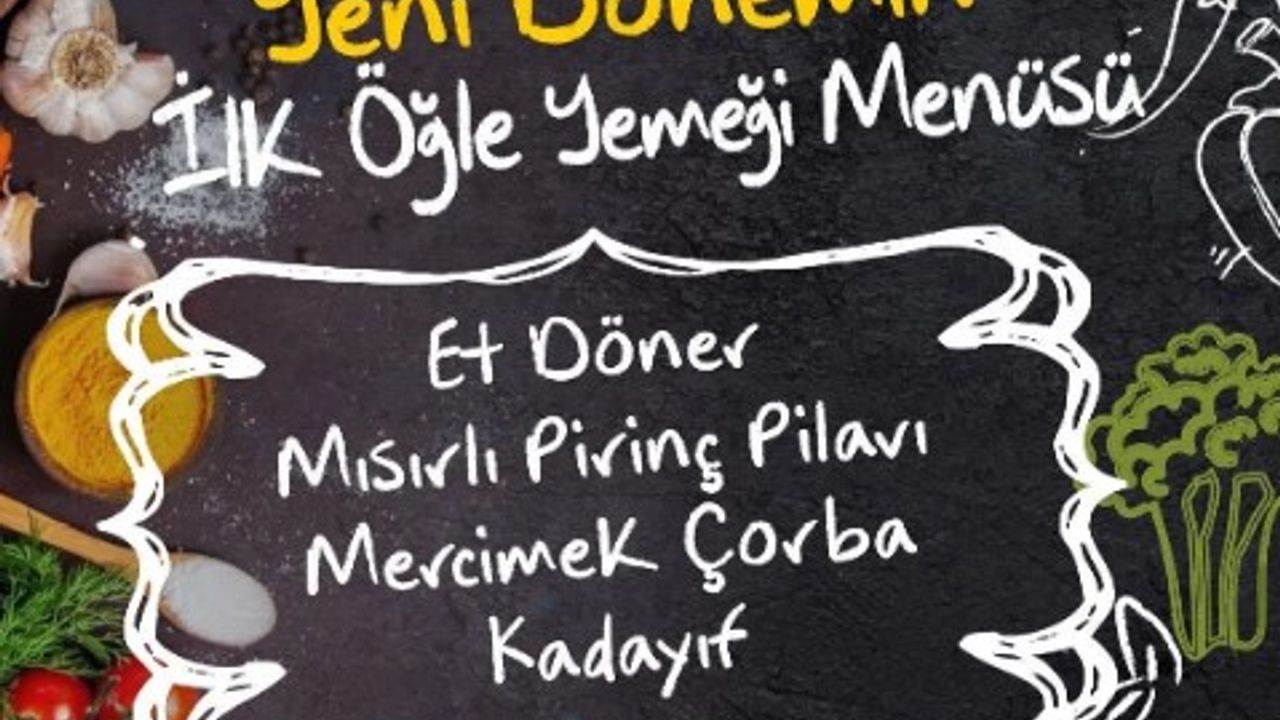 Yeni Dönemin
İlk Öğle Yemeği Menüsü
Et Döner
Mısırlı Pirinç Pilavı
Mercimek Çorba
Kadayıf